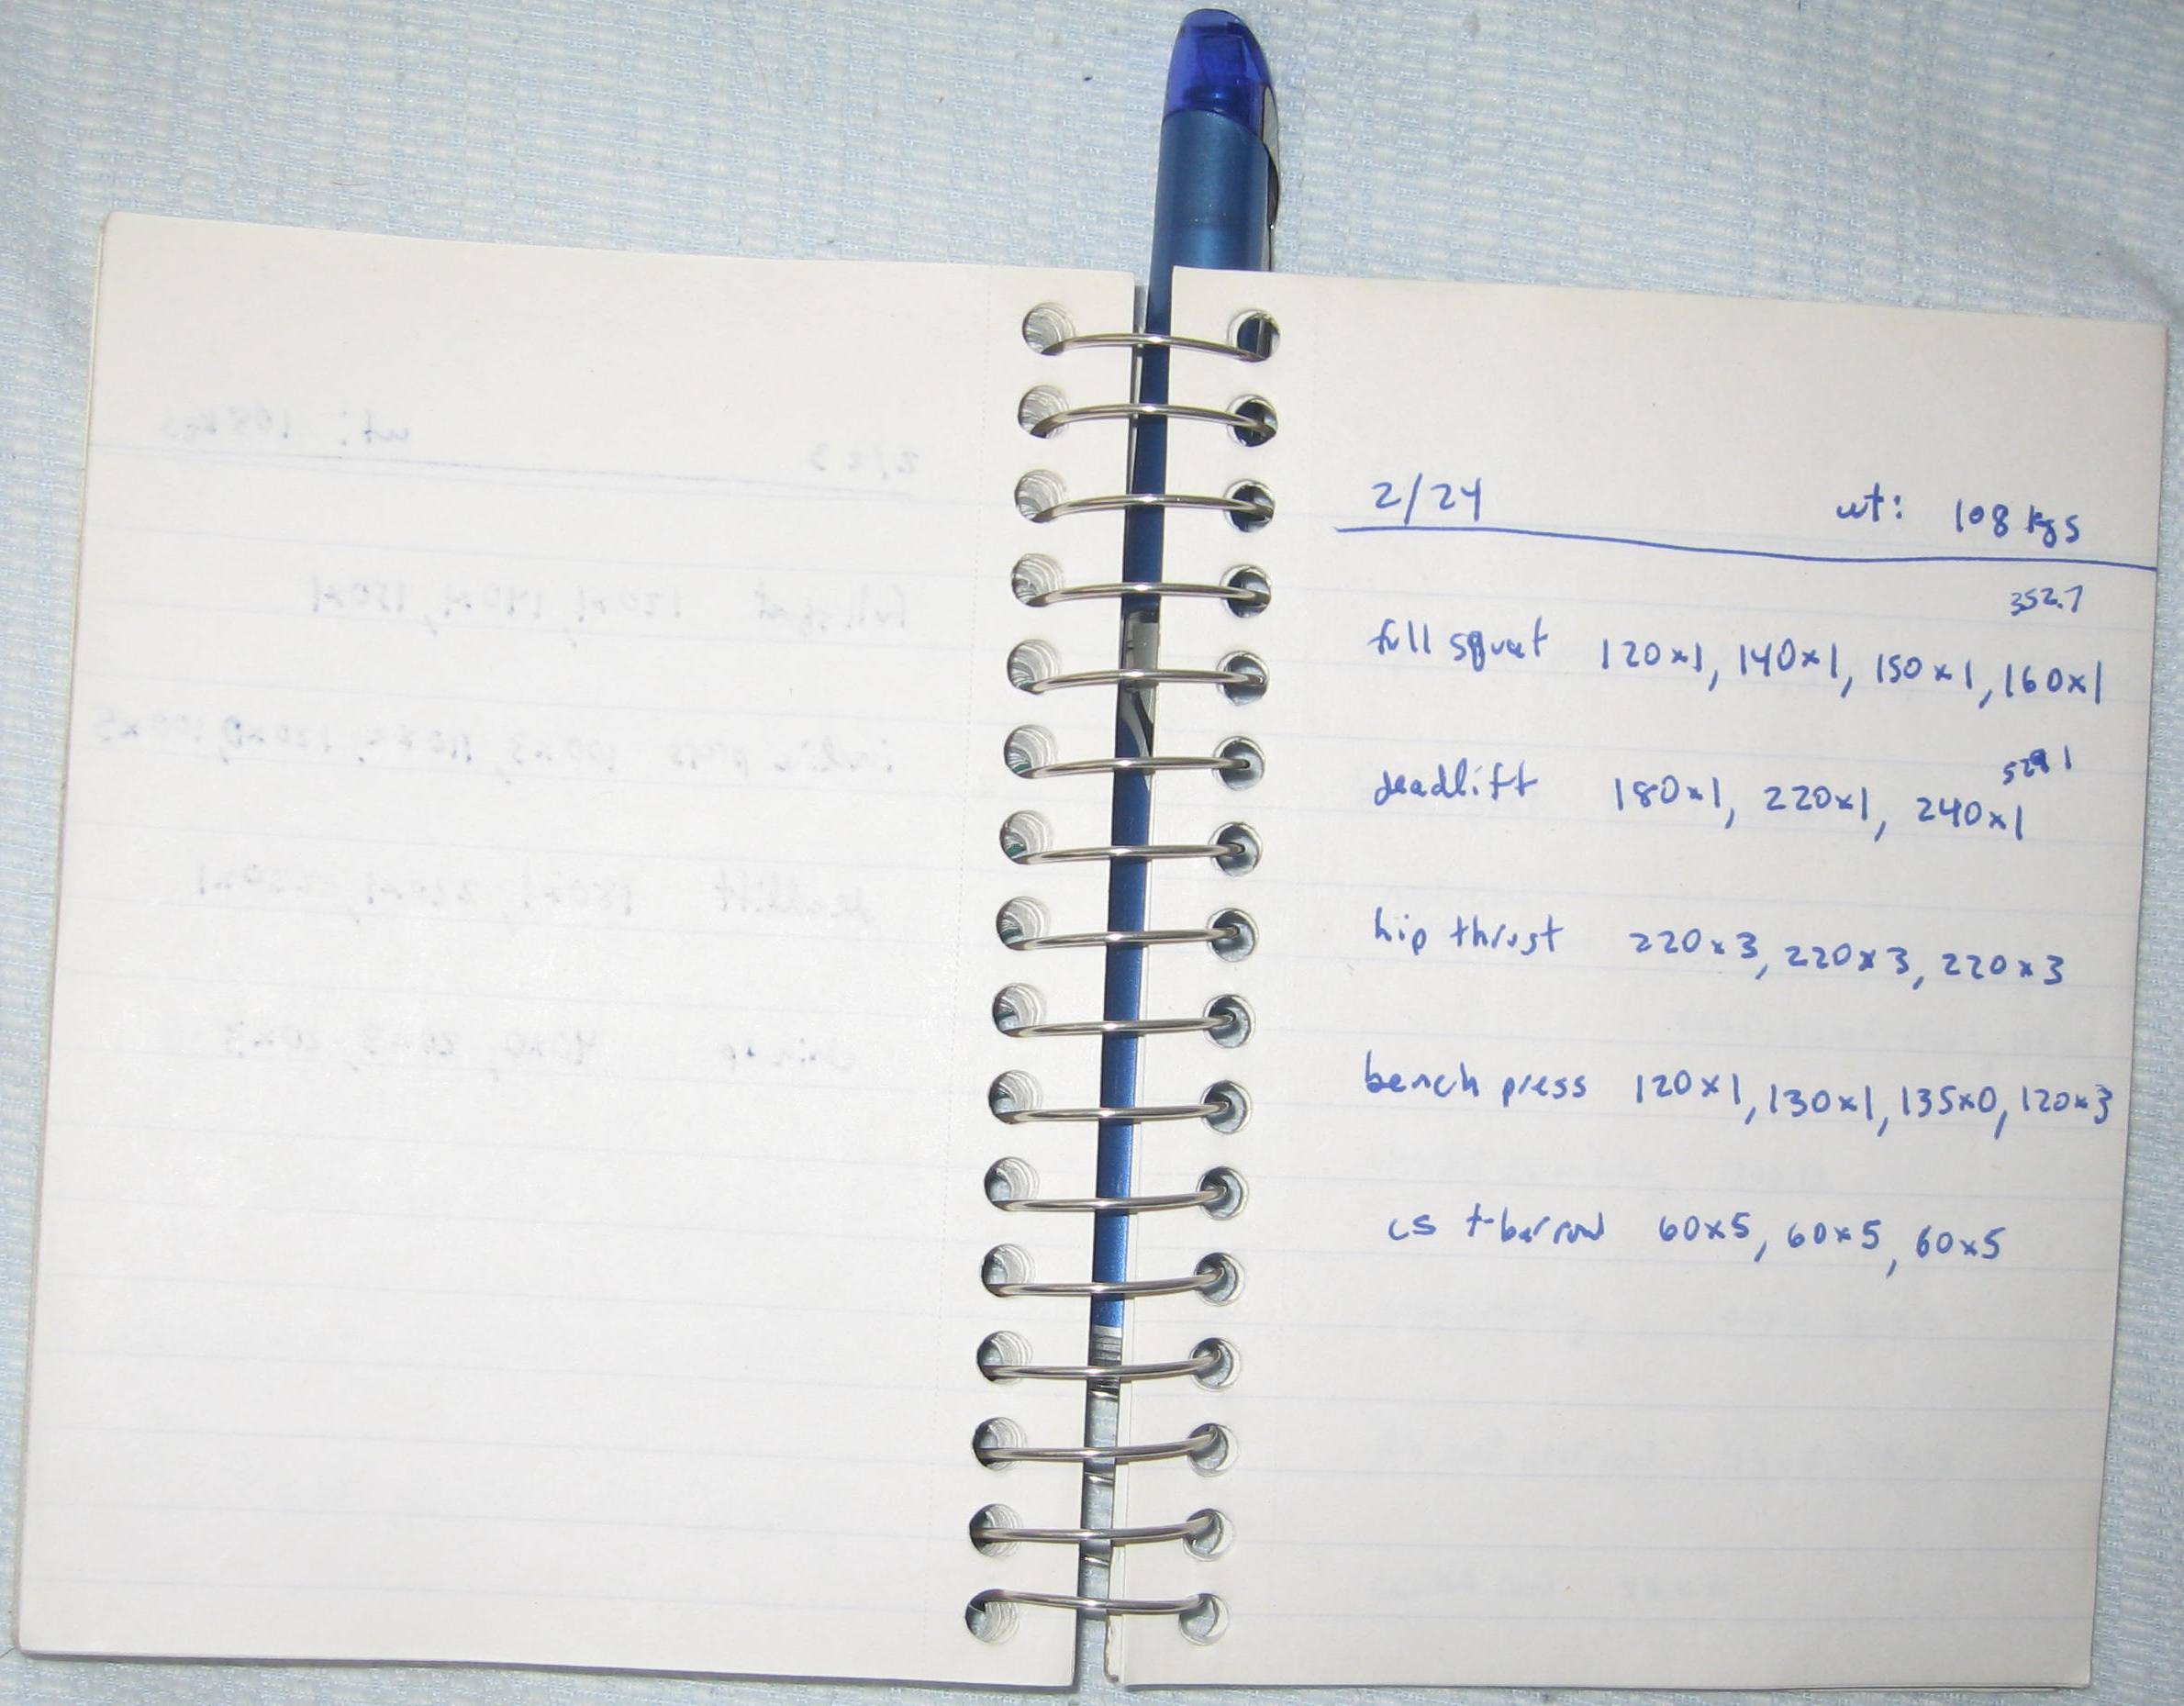 2/24 wt: 108 kgs
352.7
full squat 120x1, 140x1, 150x1, 160x1
529.1
deadlift 180x1, 220x1, 240x1
hip thrust 220x3, 220x3, 220x3
bench press 120x1, 130x1, 135x0, 120x3
cs t-bar row 60x5, 60x5, 60x5